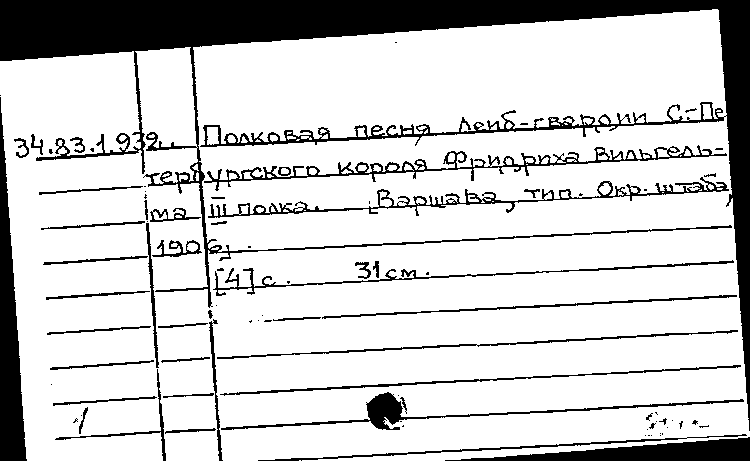 34.83.1.932. Полковая песня Лейб-гвардии С.-Пе
тербургского короля Фридриха Вильгель-
ма III полка. [Варшава, тип. Окр. штаба,
1906].
[4] с. 31 см.